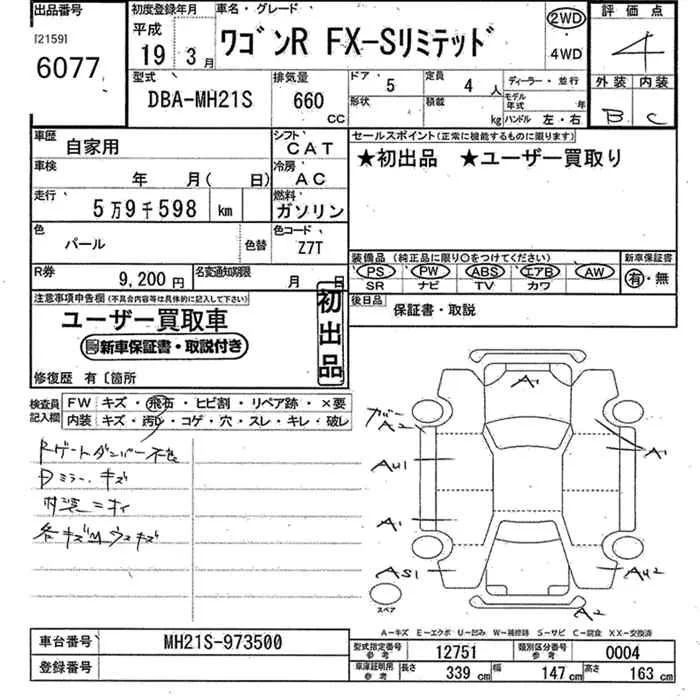 出品番号
[2159]
6077
初度登録年月
平成
19 3月
車名・グレード
ワゴンR FX-Sリミテッド
2WD
・
4WD
評価点
4
外装 内装
B C
型式
DBA-MH21S
排気量
660
CC
ドア 5
定員 4 人
形状
積載 kg
ディーラー・並行
モデル年式 年
ハンドル 左・右
車歴
自家用
シフト
CAT
車検
年 月( 日)
冷房
AC
走行
5万9千598 km
燃料
ガソリン
色
パール
色替
色コード
Z7T
R券
9,200円
名変通知期限
月 日
セールスポイント(正常に機能するものに限ります)
★初出品 ★ユーザー買取り
装備品(純正品に限り○をつけてください)
PS PW ABS エアB AW
SR ナビ TV カワ
新車保証書
有・無
後日品
保証書・取説
注意事項申告欄(不具合内容等は具体的に記入して下さい)
ユーザー買取車
新車保証書・取説付き
初出品
修復歴 有〔箇所
検査員記入欄
FW キズ・飛石・ヒビ割・リペア跡・×要
内装 キズ・汚レ・コゲ・穴・スレ・キレ・破レ
Rゲートダンパー不良
Dミラー キズ
各キズMウスキズ
A1
カバー
A2
A1
AU1
A1
AS1
AU2
A2
スペア
A-キズ E-エクボ U-凹み W-補修跡 S-サビ C-腐食 XX-交換済
車台番号
MH21S-973500
登録番号
型式指定番号
参考
12751
類別区分番号
参考
0004
車庫証明用
参考
長さ 339 cm
幅 147 cm
高さ 163 cm